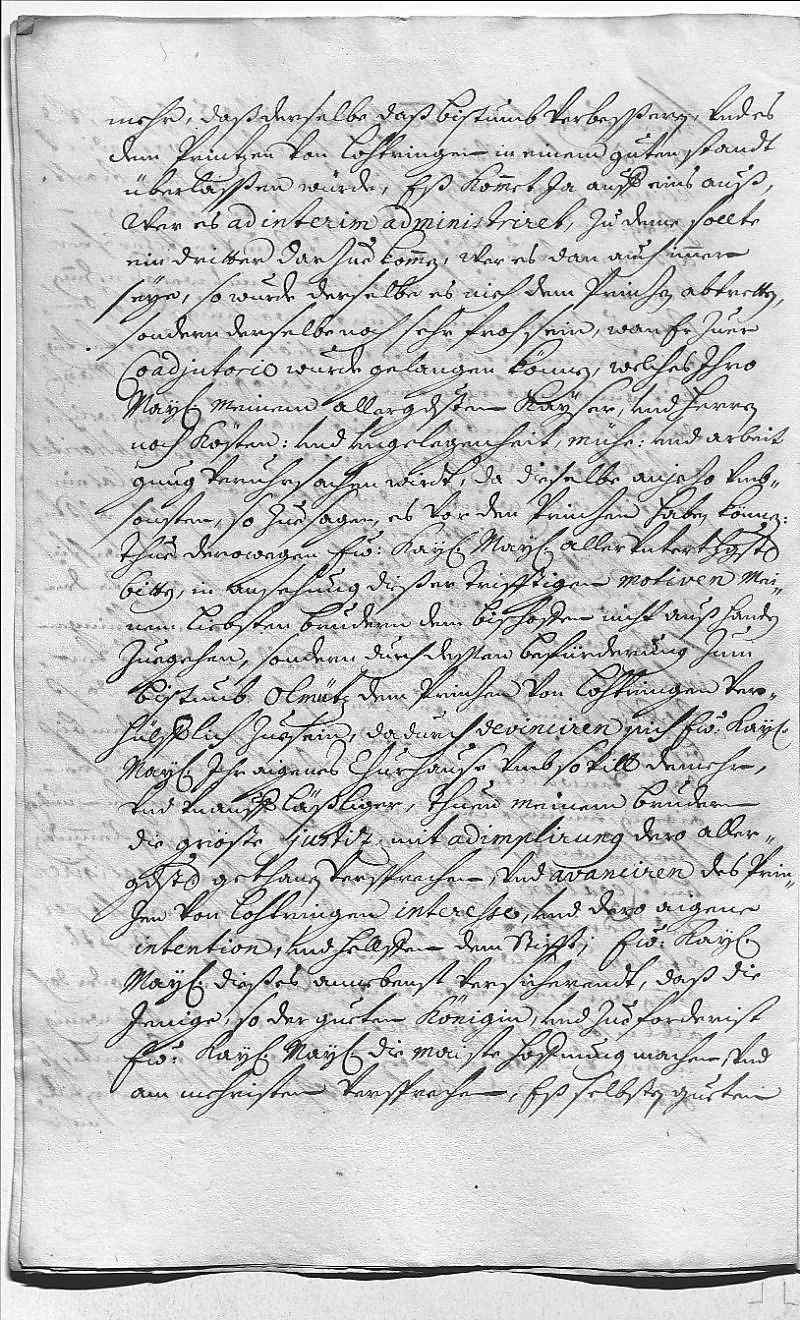 mehr, daß derselbe daß bistumb verbesseren, vnd es
dem Printzen von Lothringen in einem guten standt
überlassen wurde, Eß kommet Ja auff eins auß,
wer es ad interim administriret, Zu deme sollte
ein dritter dar Zue kommen, wer es dan auch immer
seye, so wurde derselbe es nich dem Printzen abtretten,
sondern derselbe noch sehr froh sein, wan Er Zuer
Coadjutorio wurde gelangen können, welches Ihro
Mayt. meinem allergdsten Kayser, vnd Herren
noch Kösten: vnd vngelegenheit, mühe: vnd arbeit
gnug veruhrsachen wirdt, da dieselbe anjetzo vmb-
sonsten, so Zuesagen, es vor den Printzen haben können:
Thue derowegen Ew: Kayl. Mayt. allervnterthgst
bitten, in ansehung dießer trifftigen motiven mei-
nem liebsten brudern dem bischoffen nicht auß handen
Zuegehen, sondern durch dessen befürderung Zum
bistumb Olmütz dem Printzen von Lothringen ver-
hülfflich Zuesein, dadurch devinciren mich Ew: Kayl.
Mayt. Ihr aigenes Churhause vmb so vill demehr,
vnd vnaufläßliger, thuen meinem brudern
die gröste justitz mit adimplirung dero aller-
gdst gethanen versprechen, vnd avanciren des Prin-
Zen von Lothringen interesse, vnd dero aigene
intention, vnd helffen dem Stifft; Ew: Kayl.
Mayt. dießes annebenst versicherendt, daß die
Jenige, so der guten Königin, vnd Zue forderist
Ew: Kayl. Mayt. die maiste hoffnung machen, vnd
am mehristen versprechen, Eß selbsten guten